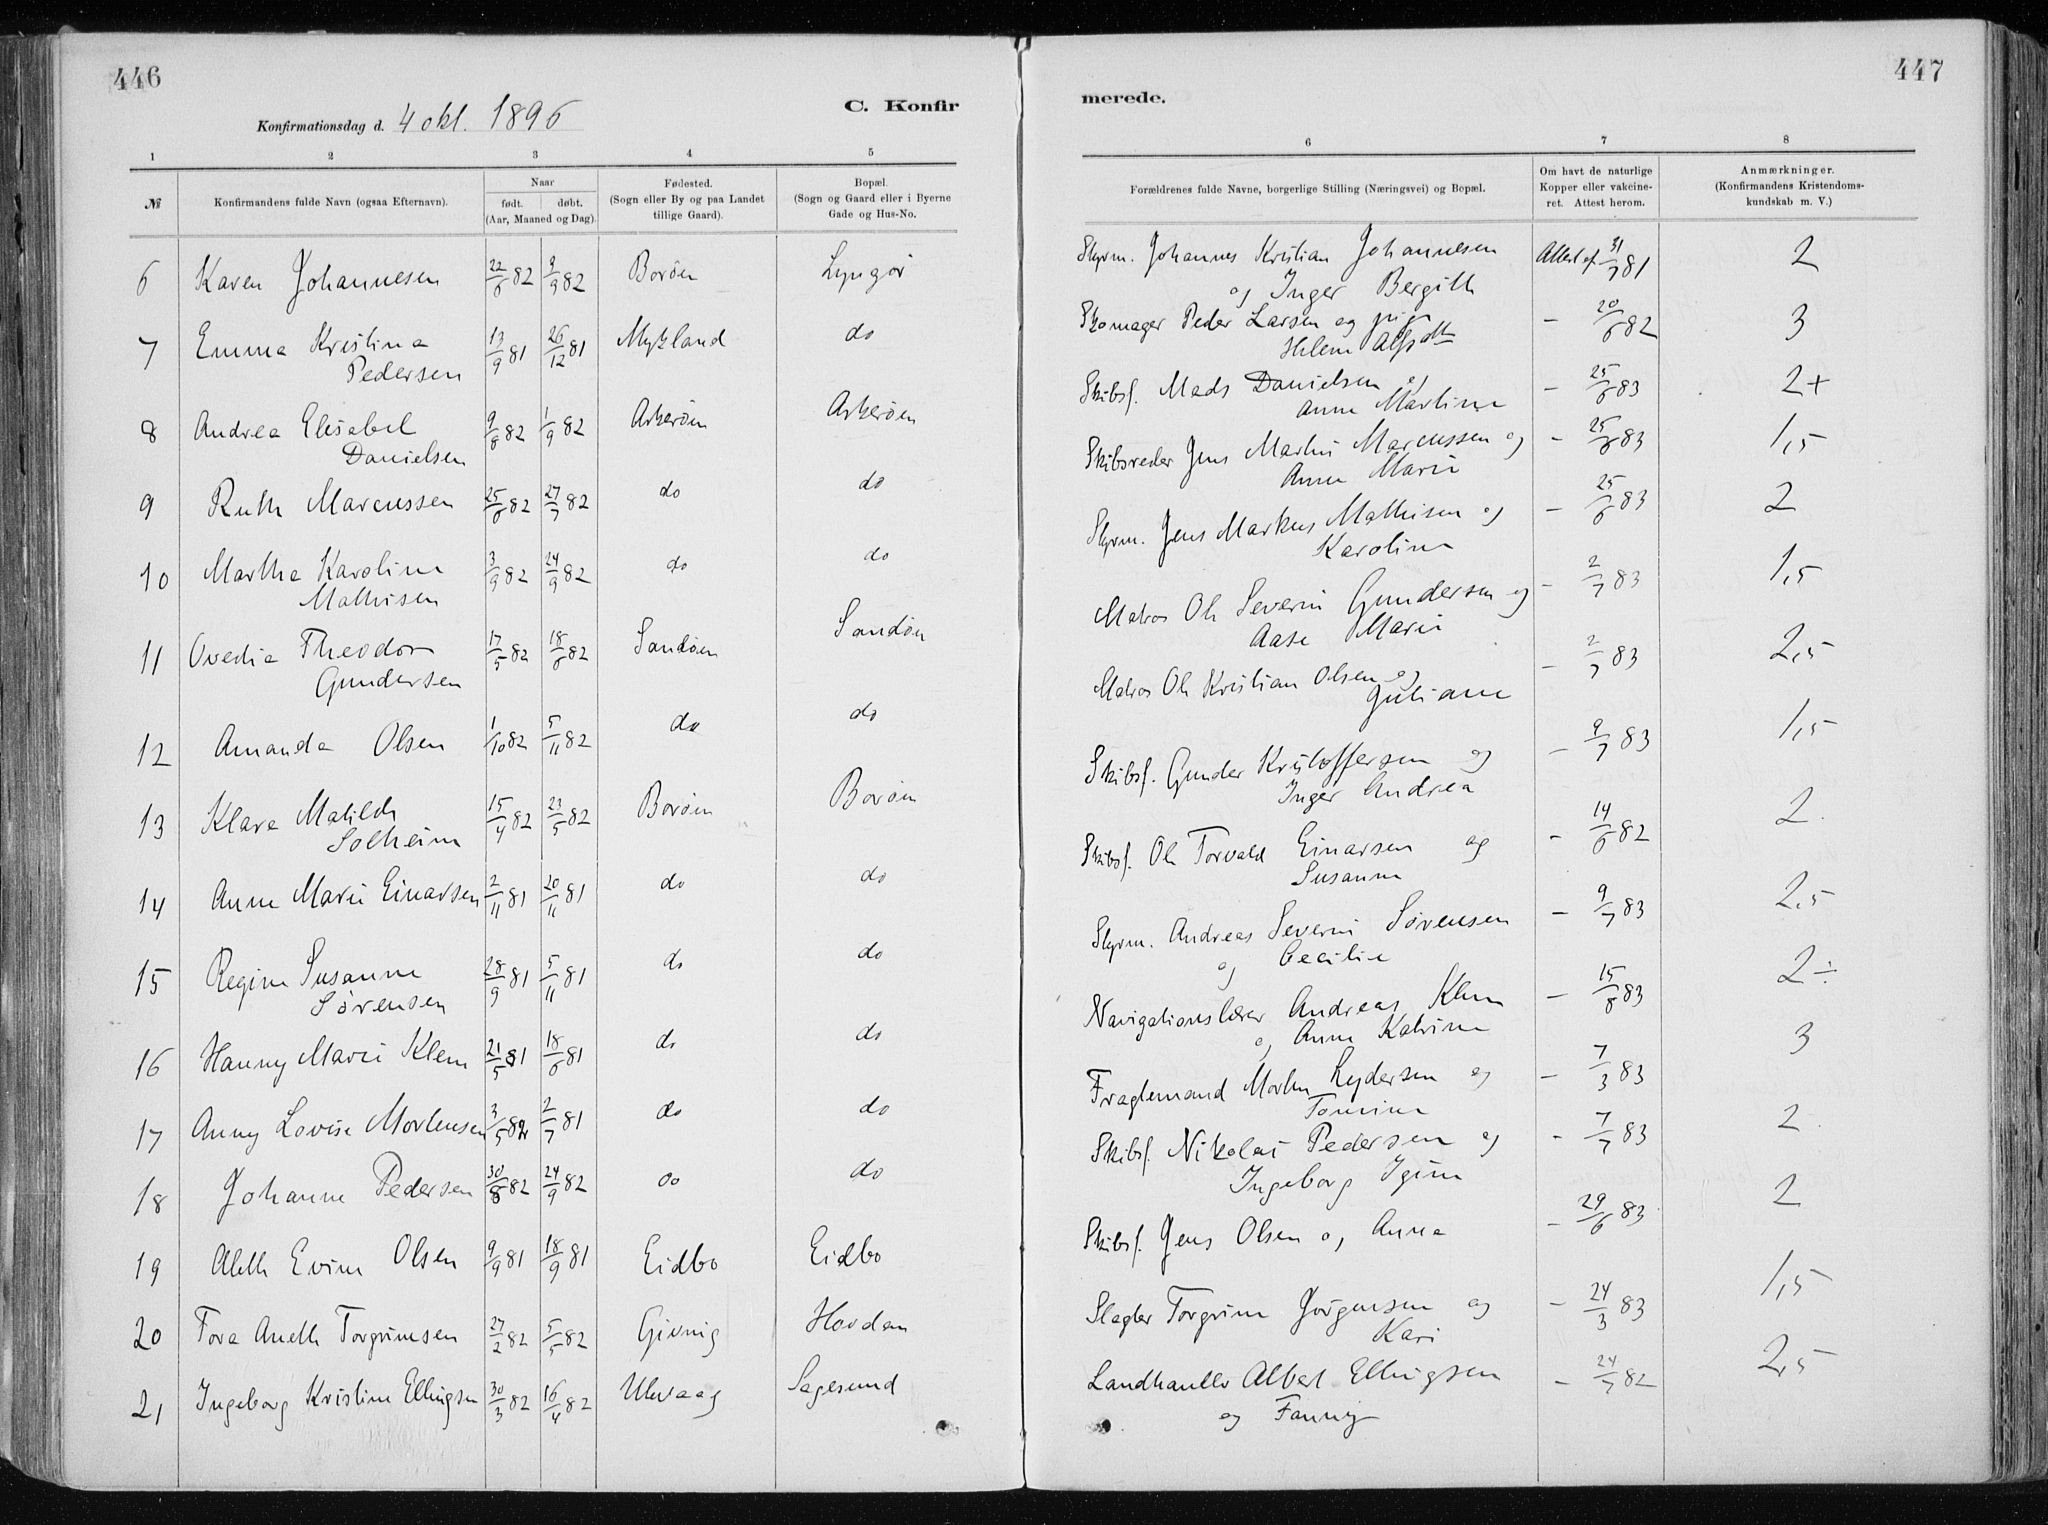 446
Konfirmationsdag d. 4 okt. 1896
C. Konfir
1 2 3 4 5
№
Konfirmandens fulde Navn (ogsaa Efternavn).
Naar
født. døbt.
(Aar, Maaned og Dag).
Fødested.
(Sogn eller By og paa Landet
tillige Gaard).
Bopæl.
(Sogn og Gaard eller i Byerne
Gade og Hus-No.
6 Karen Johannesen 22/6 82 3/9 82 Borøen Lyngør
7 Emma Kristina 13/9 81 26/12 81 Mykland do
Pedersen
8 Andrea Elisabet 9/8 82 1/9 82 Askerøen Askerøen
Danielsen
9 Ruth Marcussen 25/6 82 27/7 82 do do
10 Martha Karoline 3/9 82 24/9 82 do do
Mathisen
11 Ovedia Theodora 17/5 82 18/6 82 Sandøen Sandøen
Gundersen
12 Amanda Olsen 1/10 82 5/11 82 do do
13 Klara Matilde 15/4 82 23/5 82 Borøen Borøen
Solheim
14 Anne Marie Einarsen 2/11 81 20/11 81 do do
15 Regine Susanne 28/9 81 5/11 81 do do
Sørensen
16 Hanny Marie Klem 21/5 81 18/6 81 do do
17 Anny Lovise Mortensen 3/5 82 2/7 81 do do
18 Johanne Pedersen 30/8 82 24/9 82 do do
19 Aleth Evine Olsen 9/9 81 18/9 81 Eidbo Eidbo
20 Tora Aneth Torgrimsen 27/2 82 5/5 82 Givnig Hovdan
21 Ingeborg Kristine Ellingsen 30/3 82 16/4 82 Ulevaag Sagesund
447
merede.
6 7 8
Forældrenes fulde Navne, borgerlige Stilling (Næringsvei) og Bopæl.
Om havt de naturlige
Kopper eller vakcine-
ret. Attest herom.
Anmærkninger.
(Konfirmandens Kristendoms-
kundskab m. V.)
Styrm. Johannes Kristian Johannesen Attest af 31/7 81 2
og Inger Bergith
Skomager Peder Larsen og pige - 20/6 82 3
Helene Alfsdtr
Skibsf. Mads Danielsen og - 25/6 83 2+
Anne Martine
Skibsreder Jens Martin Marcussen og - 25/6 83 1,5
Anne Marie
Styrm. Jens Markus Mathisen og - 25/6 83 2
Karoline
Matros Ole Severin Gundersen og - 2/7 83 1,5
Aase Marie
Matros Ole Kristian Olsen og - 2/7 83 2,5
Juliane
Skibsf. Gunder Kristoffersen og - 9/7 83 1,5
Inger Andrea
Skibsf. Ole Torvald Einarsen og - 14/6 82 2.
Susanne
Styrm. Andreas Severin Sørensen - 9/7 83 2,5
og Cecilie
Navigationslærer Andreas Klem - 15/8 83 2÷
og Anne Katrine
Fragtemand Morten Lydersen og - 7/3 83 3
Tomine
Skibsf. Nikolai Pedersen og - 7/7 83 2.
Ingeborg
Skibsf. Jens Olsen og Anna - 29/6 83 2
Slagter Torgrim Jørgensen og - 24/3 83 1,5
Kari
Landhandler Albert Ellingsen - 24/7 82 2,5
og Fanny